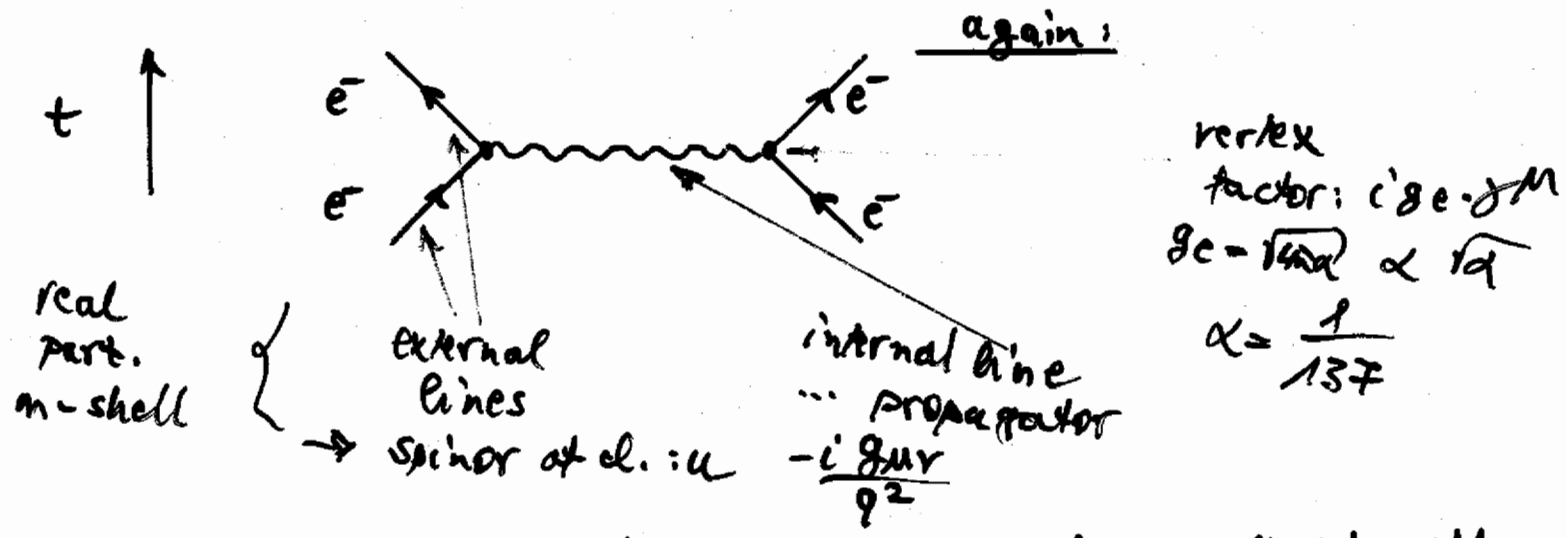 again:
t
e⁻
e⁻
e⁻
e⁻
vertex
factor: i ge·γ^μ
ge = √4πα ∝ √α
α = 1/137
real
part.
m-shell
external
lines
→ spinor of el.: u
internal line
... propagator
-i gμν / q²